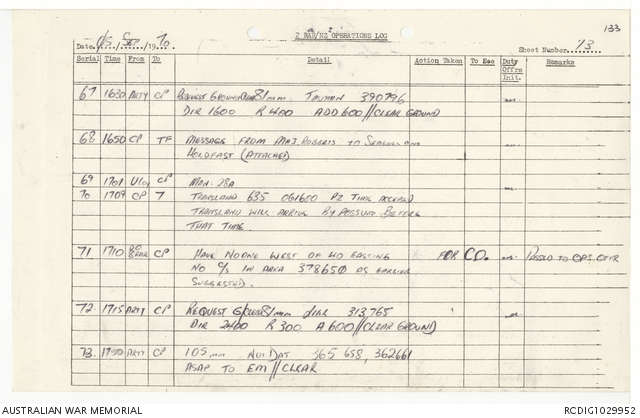 133
2 RAR/NZ OPERATIONS LOG
Date 05/Sep/1970 Sheet Number 73
Serial Time From To Detail Action Taken To See Duty Offrs Init. Remarks
67 1630 ARTY CP REQUEST GROUND 81mm 390796
DIR 1600 R 400 ADD 600//CLEAR GROUND)
68 1650 CP TF MESSAGE FROM MAJ. ROBERTS TO AND
HOLDFAST (ATTACHED)
69 1701 CP MAN. 28A
70 1709 CP 7 635 061600 PZ TIME
WILL ARRIVE BY POSSUM BEFORE
THAT TIME
71 1710 CP HAVE NO ONE WEST OF 40 EASTING FOR CO. PASSED TO OPS. OFFR
NO C/S IN AREA 378650 AS EARLIER
SUGGESTED.
72 1715 ARTY CP REQUEST 81mm 313765
DIR 2400 R 300 A 600//CLEAR GROUND)
73. ARTY CP 105mm NUI DAT 365 658, 362661
ASAP TO EM//CLEAR
AUSTRALIAN WAR MEMORIAL RCDIG1029952